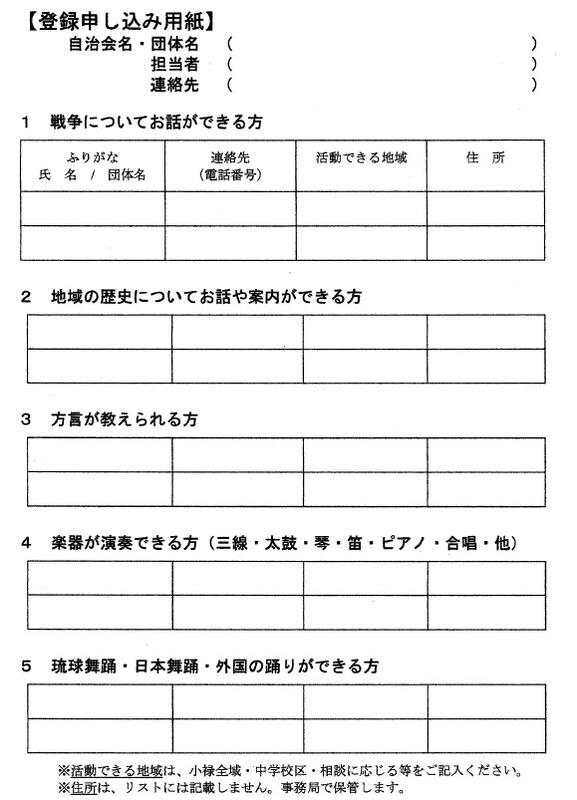 【登録申し込み用紙】
自治会名・団体名 （ ）
担当者 （ ）
連絡先 （ ）
１ 戦争についてお話ができる方
ふりがな
氏 名 / 団体名
連絡先
（電話番号）
活動できる地域
住 所
２ 地域の歴史についてお話や案内ができる方
３ 方言が教えられる方
４ 楽器が演奏できる方（三線・太鼓・琴・笛・ピアノ・合唱・他）
５ 琉球舞踊・日本舞踊・外国の踊りができる方
※活動できる地域は、小禄全域・中学校区・相談に応じる等をご記入ください。
※住所は、リストには記載しません。事務局で保管します。